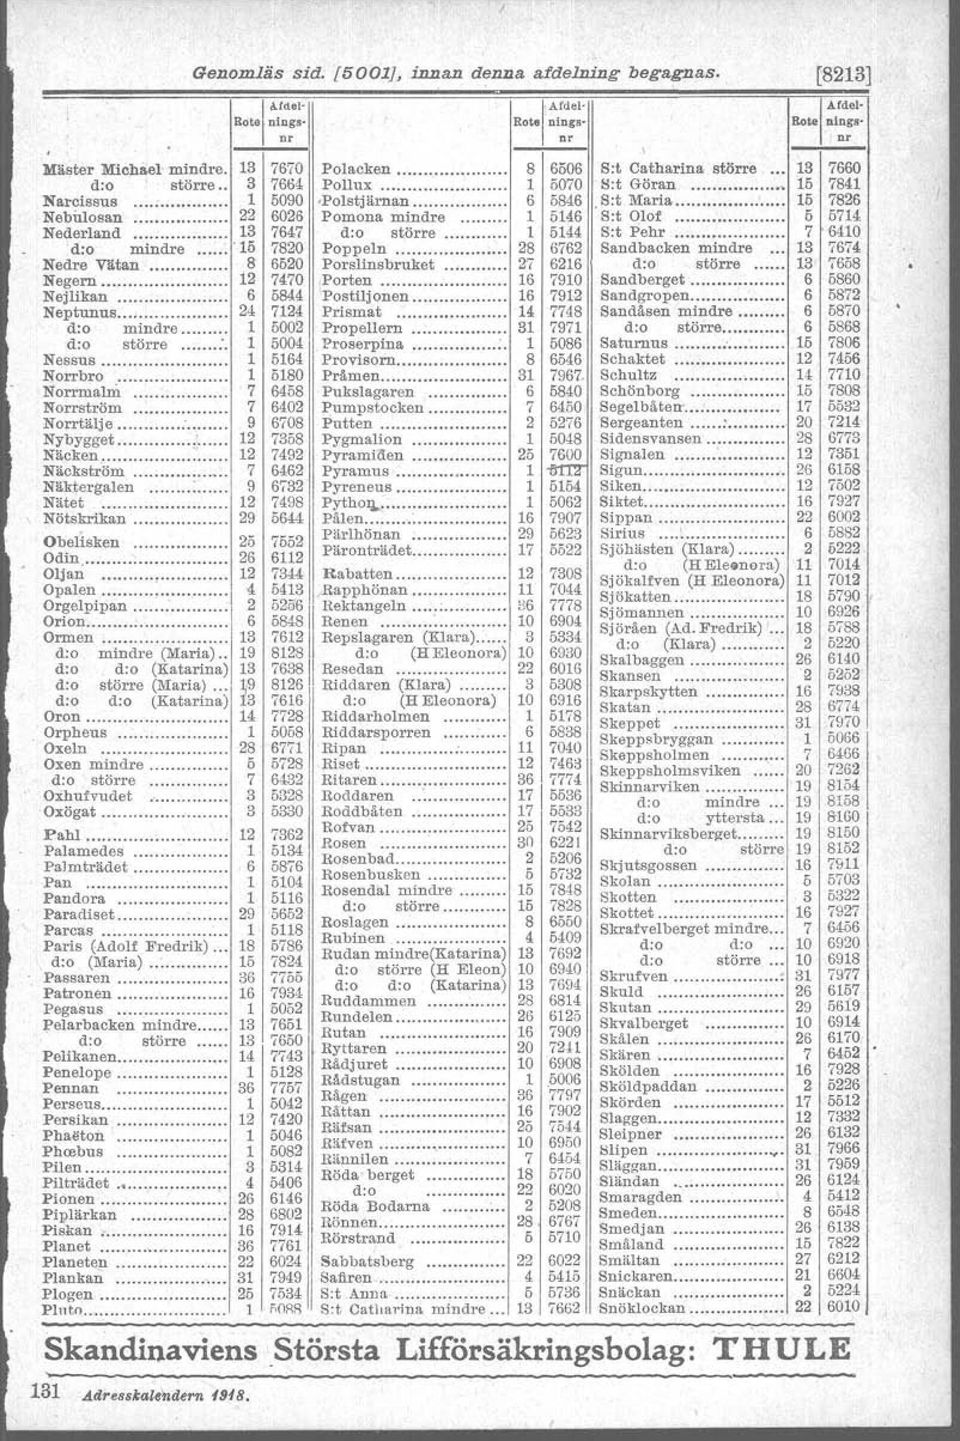 Genomläs sid. [5001], innan denna afdelning begagnas. [8213]
Rote Afdel-nings-nr Rote Afdel-nings-nr Rote Afdel-nings-nr
Mäster Michael mindre. 13 7670
d:o större.. 3 7664
Narcissus 1 5090
Nebulosan 22 6026
Nederland 13 7647
d:o mindre 15 7820
Nedre Vätan 8 6520
Negern 12 7470
Nejlikan 6 5844
Neptunus 24 7124
d:o mindre 1 5002
d:o större 1 5004
Nessus 1 5164
Norrbro 1 5180
Norrmalm 7 6458
Norrström 7 6402
Norrtälje 9 6708
Nybygget 12 7358
Näcken 12 7492
Näckström 7 6462
Näktergalen 9 6732
Nätet 12 7498
Nötskrikan 29 5644
Obelisken 25 7552
Odin 26 6112
Oljan 12 7344
Opalen 4 5413
Orgelpipan 2 5256
Orion 6 5848
Ormen 13 7612
d:o mindre (Maria).. 19 8128
d:o d:o (Katarina) 13 7638
d:o större (Maria) ... 19 8126
d:o d:o (Katarina) 13 7616
Oron 14 7728
Orpheus 1 5058
Oxeln 28 6771
Oxen mindre 5 5728
d:o större 7 6432
Oxhufvudet 3 5328
Oxögat 3 5330
Pahl 12 7362
Palamedes 1 5134
Palmträdet 6 5876
Pan 1 5104
Pandora 1 5116
Paradiset 29 5652
Parcas 1 5118
Paris (Adolf Fredrik) ... 18 5786
d:o (Maria) 15 7824
Passaren 36 7755
Patronen 16 7934
Pegasus 1 5052
Pelarbacken mindre 13 7651
d:o större 13 7650
Pelikanen 14 7743
Penelope 1 5128
Pennan 36 7757
Perseus 1 5042
Persikan 12 7420
Phaëton 1 5046
Phœbus 1 5082
Pilen 3 5314
Pilträdet 4 5406
Pionen 26 6146
Piplärkan 28 6802
Piskan 16 7914
Planet 36 7761
Planeten 22 6024
Plankan 31 7949
Plogen 25 7534
Pluto 1 5088
Polacken 8 6506
Pollux 1 5070
Polstjärnan 6 5846
Pomona mindre 1 5146
d:o större 1 5144
Poppeln 28 6762
Porslinsbruket 27 6216
Porten 16 7910
Postiljonen 16 7912
Prismat 14 7748
Propellern 31 7971
Proserpina 1 5086
Provisorn 8 6546
Pråmen 31 7967
Pukslagaren 6 5840
Pumpstocken 7 6450
Putten 2 5276
Pygmalion 1 5048
Pyramiden 25 7600
Pyramus 1 5112
Pyreneus 1 5154
Python 1 5062
Pålen 16 7907
Pärlhönan 29 5623
Päronträdet 17 5522
Rabatten 12 7308
Rapphönan 11 7044
Rektangeln 36 7778
Renen 10 6904
Repslagaren (Klara) 3 5334
d:o (H Eleonora) 10 6930
Resedan 22 6016
Riddaren (Klara) 3 5308
d:o (H Eleonora) 10 6916
Riddarholmen 1 5178
Riddarsporren 6 5838
Ripan 11 7040
Riset 12 7463
Ritaren 36 7774
Roddaren 17 5536
Roddbåten 17 5533
Rofvan 25 7542
Rosen 30 6221
Rosenbad 2 5206
Rosenbusken 5 5732
Rosendal mindre 15 7848
d:o större 15 7828
Roslagen 8 6550
Rubinen 4 5409
Rudan mindre(Katarina) 13 7692
d:o större (H Eleon) 10 6940
d:o d:o (Katarina) 13 7694
Ruddammen 28 6814
Rundelen 26 6125
Rutan 16 7909
Ryttaren 20 7241
Rådjuret 10 6908
Rådstugan 1 5006
Rågen 36 7797
Råttan 16 7902
Räfsan 25 7544
Räfven 10 6950
Rännilen 7 6454
Röda berget 18 5750
d:o 22 6020
Röda Bodarna 2 5208
Rönnen 28 6767
Rörstrand 5 5710
Sabbatsberg 22 6022
Safiren 4 5415
S:t Anna 5 5736
S:t Catharina mindre ... 13 7662
S:t Catharina större ... 13 7660
S:t Göran 15 7841
S:t Maria 15 7826
S:t Olof 5 5714
S:t Pehr 7 6410
Sandbacken mindre ... 13 7674
d:o större 13 7658
Sandberget 6 5860
Sandgropen 6 5872
Sandåsen mindre 6 5870
d:o större 6 5868
Saturnus 15 7806
Schaktet 12 7456
Schultz 14 7710
Schönborg 15 7808
Segelbåten 17 5532
Sergeanten 20 7214
Sidensvansen 28 6773
Signalen 12 7351
Sigun 26 6158
Siken 12 7502
Siktet 16 7927
Sippan 22 6002
Sirius 6 5882
Sjöhästen (Klara) 2 5222
d:o (H Eleonora) 11 7014
Sjökalfven (H Eleonora) 11 7012
Sjökatten 18 5790
Sjömannen 10 6926
Sjöråen (Ad. Fredrik) ... 18 5788
d:o (Klara) 2 5220
Skalbaggen 26 6140
Skansen 2 5252
Skarpskytten 16 7938
Skatan 28 6774
Skeppet 31 7970
Skeppsbryggan 1 5066
Skeppsholmen 7 6466
Skeppsholmsviken 20 7262
Skinnarviken 19 8154
d:o mindre ... 19 8158
d:o yttersta ... 19 8160
Skinnarviksberget 19 8150
d:o större 19 8152
Skjutsgossen 16 7911
Skolan 5 5703
Skotten 3 5322
Skottet 16 7927
Skrafvelberget mindre... 7 6456
d:o d:o ... 10 6920
d:o större ... 10 6918
Skrufven 31 7977
Skuld 26 6157
Skutan 29 5619
Skvalberget 10 6914
Skålen 26 6170
Skären 7 6452
Skölden 16 7928
Sköldpaddan 2 5226
Skörden 17 5512
Slaggen 12 7332
Sleipner 26 6132
Slipen 31 7966
Släggan 31 7959
Sländan 26 6124
Smaragden 4 5412
Smeden 8 6548
Smedjan 26 6138
Småland 15 7822
Smältan 27 6212
Snickaren 21 6604
Snäckan 2 5224
Snöklockan 22 6010
Skandinaviens Största Lifförsäkringsbolag: THULE
131 Adresskalendern 1918.